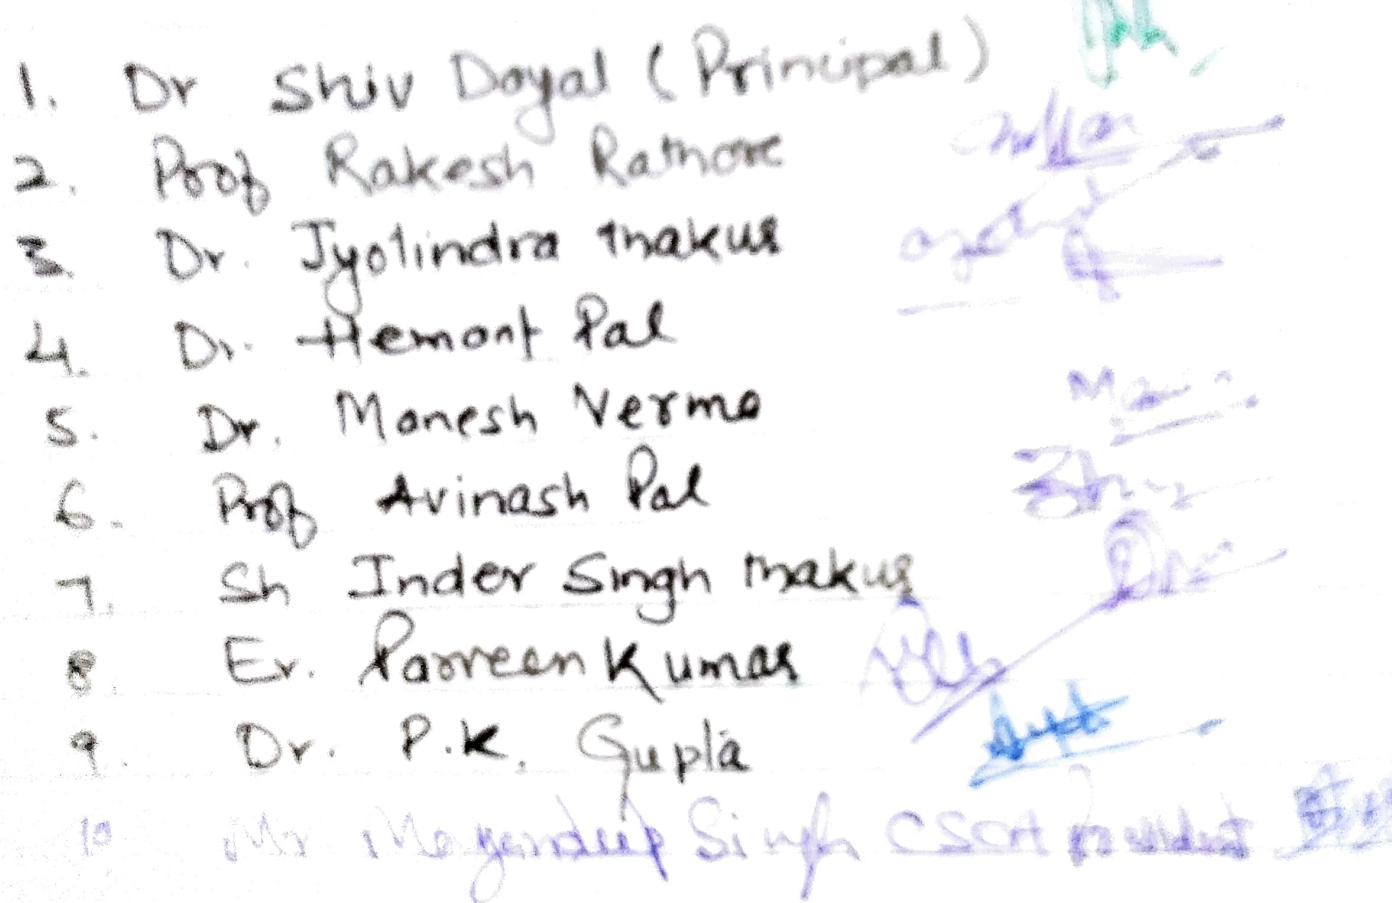 1. Dr Shiv Dayal (Principal)
2. Prof Rakesh Rathore
3. Dr. Jyotindra Thakur
4. Dr. Hemant Pal
5. Dr. Manesh Verma
6. Prof Avinash Pal
7. Sh Inder Singh Thakur
8. Er. Parveen Kumar
9. Dr. P.K. Gupta
10 Mr Singh CSCA President